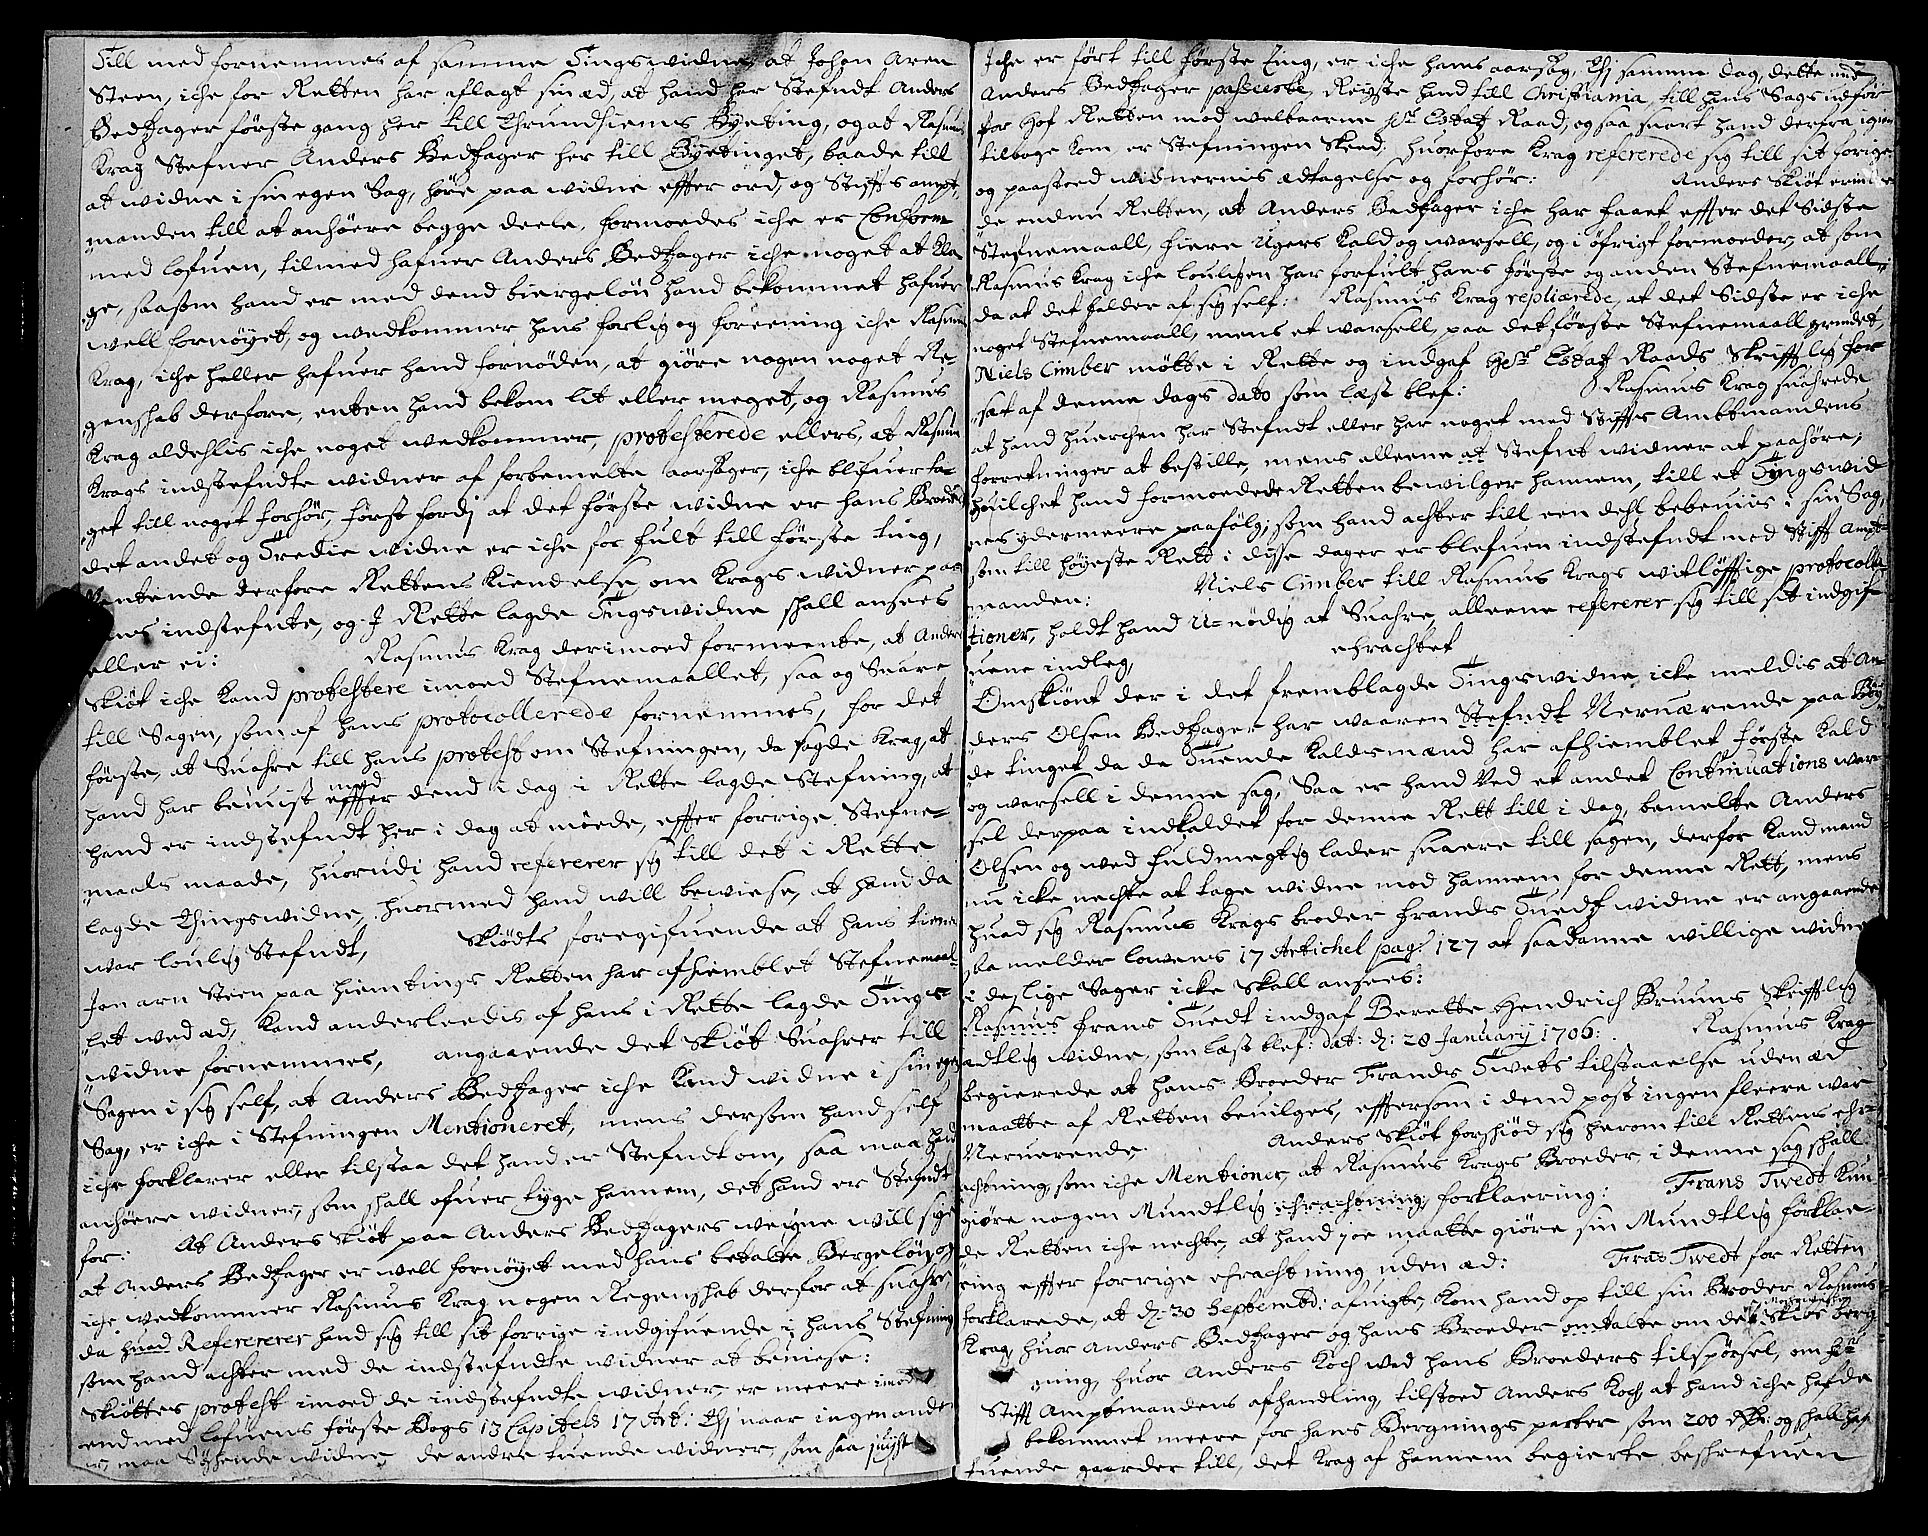 Till med fornemmes af samme Tingswidne, at Johan Aren
Steen, iche for Retten har aflagt sin æd, at hand har Stefndt Anders
Bedhager første gang her till Thrundhiems Byeting, og at Rasmus
Krag Stefner Anders Bedhager her till Byetinget, baade till
at widne i sin egen Sag, høre paa widne effter ord, og Stiffts ampt
manden till at anhøere begge deele, formoedes iche er Conform
med lofuen, tilmed hafuer Anders Bedhager iche noget at Kla
ge, saasom hand er med dend biergeløn hand bekommet hafuer
well fornøyet, og wedkommer hans forlig og foreening iche Rasmus
Krag, iche heller hafuer hand fornøden, at giøre nogen noget Re-
genshab derfore, enten hand bekom lit eller meget, og Rasmus
Krag aldehlis iche noget wedkommer, protesterede ellers, at Rasmus
Krags indstefndte widner af forbemelte aarsager, iche blifuer ta-
get till noget forhør, først fordj at det første widne er hans Broder
det andet og Tredie widne er iche for fult till første ting,
wentende derfore Rettens Kiendelse om Krags widner paa
hans indstefnte, og J Rette lagde Tingswidne shall ansees
eller ei: Rasmus Krag derimoed formeente, at Anders
Skiøt iche Kand protestere imoed Stefnemaallet, saa og Suare
till Sagen, som af hans protocollerede fornemmes, for det
første, at Suahre till hans protest om Stefningen, da sagde Krag, at
hand har beuiist med effter dend i dag i Rette lagde Stefning, at
hand er indstefndt her i dag at møede, effter forrige Stefne-
maals maade, huorudi hand refererer sig till det i Rette
lagde thingswidne, huormed hand will bewiese, at hand da
war loulig Stefndt, Skiødts foregifuende at hans tiener
Jon arn Steen paa hiemtings Retten har afhiemblet Stefnemaal-
let wed æd, Kand anderleedis af hans i Rette lagde Tings-
widne fornemmes, angaaende det Skiøt Suahrer till
Sagen i sig self, at Anders Bedhager iche Kand widne i sin egen
Sag, er iche i Stefningen Mentioneret, mens dersom hand self
iche forklarer eller tilstaa det hand er Stefndt om, saa maa hand
anhøere widner, som shall ofuer tyge hannem, det hand er Stefndt
for: At Anders Skiøt paa Anders Bedhagers weigne will sige
at Anders Bedhager er well fornøyet med hans betalte Bergeløn, og
iche wedkommer Rasmus Krag nogen Regenshab derfor at suahre,
da huad Refererer hand sig till sit forrige indgifuende i hans Stefning
som hand achter med de indstefndte widner at beuiese:
Skiøttes protest imoed de indstefndte widner, er meere imod
end med lofuens første Bogs 13 Capitels 17 Art: thj naar ingen anden
er, maa Syhende widne, de andre tuende widner, som saa juist
Iche er ført till første Ting, er iche hans aarsag, thj samme dag, dette med
Anders Bedhager passerte, Reigste hand till Christiania till hans Sags udfør
for Hof Retten mod welbaarne Hr Estatz Raad, og saa snart hand derfra igien
tilbage kom er Stefningen Skeed; huorfore Krag refererede sig till sit forige
og paastoed widnernis ædtagelse og forhør: Anders Skiøt erindre
de endnu Retten, at Anders Bedhager iche har faaet effter det Sidste
Stefnemaall, fiere Ugers Kald og warsell, og i øfrigt formoeder, at som
Rasmus Krag iche louligen har forfult hans første og anden Stefnemaall
da at det falder af sig self: Rasmus Krag replicerede, at det Sidste er iche
noget Stefnemaall, mens et warsell, paa det første Stefnemaall grundet,
Niels Cimber møtte i Rette og indgaf Hr Estatz Raads Skrifftlig for
sat af denne dags dato som læst blef: Rasmus Krag suahrede
at hand huerchen har Stefndt eller har noget med Stiffts Ambtmandens
forretninger at bestille, mens alleene at Stefnt widner at paahøre,
huilchet hand formoedede Retten bewilger hannem, till et Tingswid
nes ydermeere paafølg, som hand achter till een dehl bebeuiis i sin Sag,
som till høyeste Rett i disse dager er blefuen indstefndt med Stifft Ampt
manden: Niels Cimber till Rasmus Krags witløfftige protocolla
tioner, holdt hand u-nødig at Suahre, alleene referer sig till sit indgif
uene indleg, ehrachtet
Omskiønt der i det fremblagde Tingswidne icke meldis at An-
ders Olsen Bedhager har waaren Stefndt Neruærende paa By
de tinget da de Tuende Kaldsmænd har afhiemblet første Kald
og warsell i denne sag, Saa er hand Ved et andet Continuations war
sel derpaa indkaldet for denne Rett till i dag, bemelte Anders
Olsen og wed fuldmegtig lader suare till sagen, derfor Kand mand
nu icke necte at tage widne mod hannem for denne Rett, mens
huad sig Rasmus Krags broder Frands Tuedt widne er angaaende
da melder lowens 17 Artichel pag: 127 at saadanne willige widner
i deslige Sager icke Skall ansees:
Rasmus Frans Tuedt indgaf Berette Hendrich Bruuns Skrifftlig
ædtlig widne, som læst blef: dat: d: 20 January 1706: Rasmus Krag
begierede at hans Broeder Frands Twets tilstaaelse uden æd
maatte af Retten beuilges, efftersom i dend post ingen fleere war
Neruerende. Anders Skiøt forshiød sig herom till Rettens ehr-
achtning, som iche Mentioner, at Rasmus Krags Broeder i denne sag shall
giøre nogen Mundtlig ehrachtning, forklaering: Frans Twedt Kun
de Retten iche necte, at hand joe maatte giøre sin Mundtlig forklae-
ring effter forrige ehrachtning uden æd: Frans Twedt for Retten
forklarede, at d: 30 Septembr: afuigte, kom hand op till sin Broder Rasmus
Krag, huor Anders Bedhager og hans Broeder omtalte om det Skiøt berg
gning, huor Anders Koch wed hans Broeders tilspørsel, om hr
Stifft Amptmandens afhandling, tilstoed Anders Koch at hand iche hafde
bekommet meere for hans Bergnings parter, som 200 Rdr: og shall haf
tuende gaarder till, det Krag af hannem begierte beshrefuen